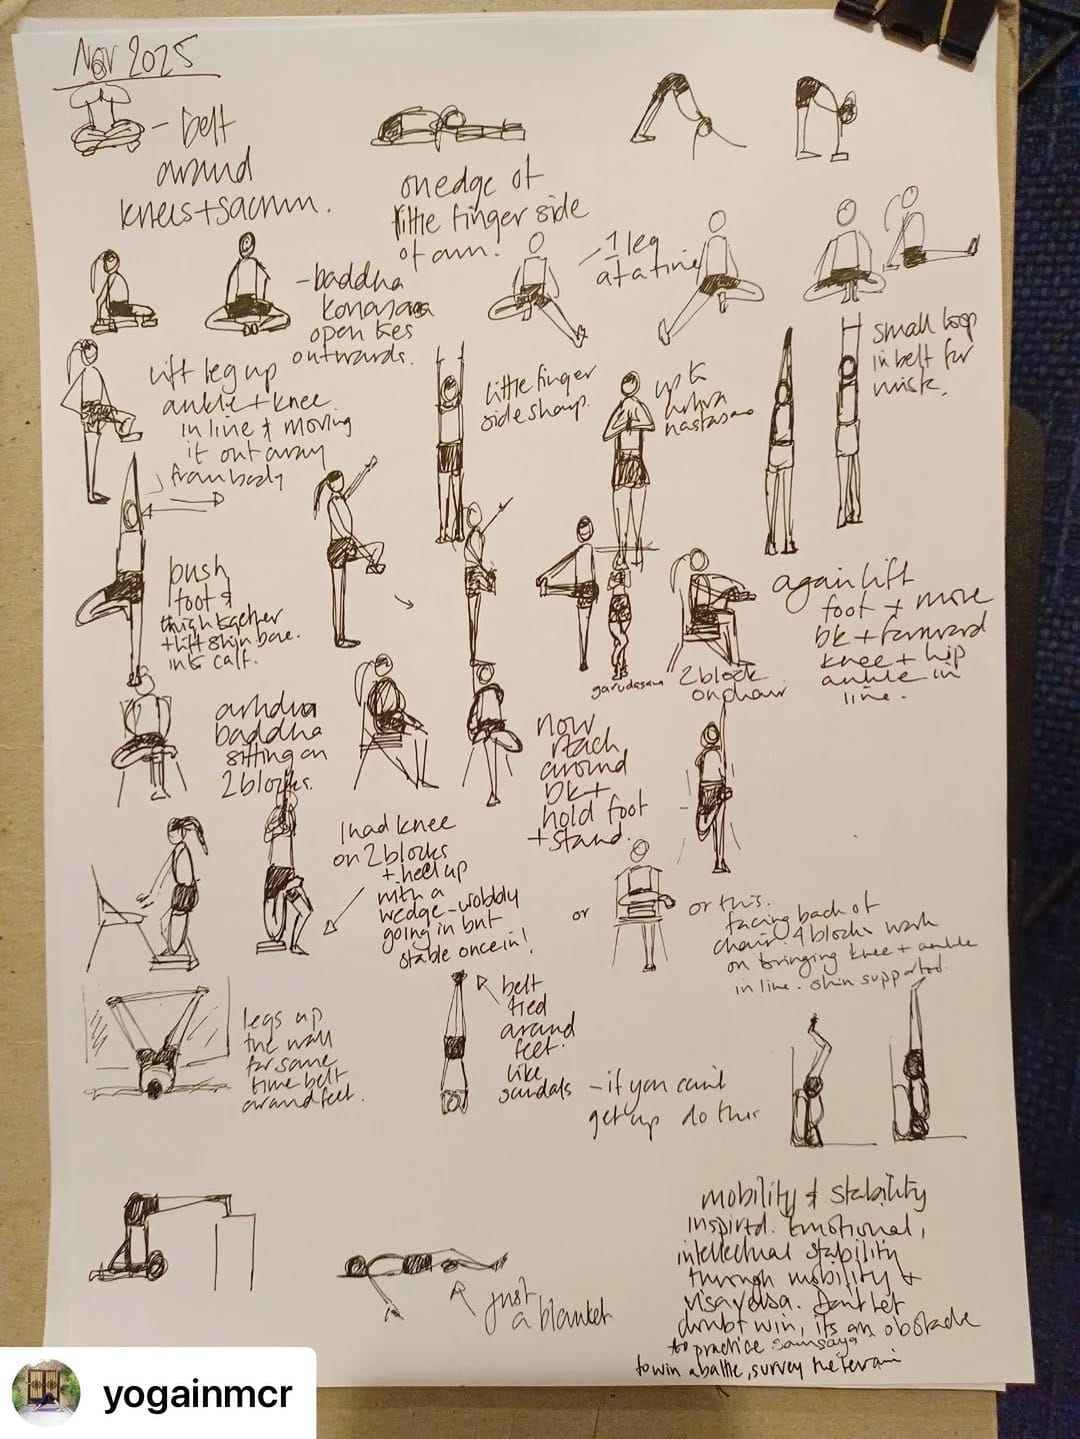 Nov 2025
- belt
around
knees + sacrum.
on edge of
little finger side
of arm!
- baddha
konasana
open toes
outwards.
1 leg
at a time
small loop
in belt for
wrist.
lift leg up
ankle + knee
in line & moving
it out away
from body
little finger
side sharp.
up to
push
foot &
thigh together
+ lift shin bone
into calf.
garudasana
2 block
on chair
again lift
foot & move
bk + forward
knee + hip
ankle in
line.
arhdra
baddha
sitting on
2 blocks.
now
reach
around
bk +
hold foot
+ stand.
I had knee
on 2 blocks
+ heel up
with a
wedge - wobbly
going in but
stable once in!
or
or this.
facing back of
chair. 4 blocks work
on bringing knee + ankle
in line. shin supported.
legs up
the wall
for some
time belt
around feet.
belt
tied
around
feet.
like
sandals
- if you can't
get up do this
just
a blanket
mobility & stability
inspired. Emotional,
intellectual stability
through mobility &
visa versa. Don't let
doubt win, its an obstacle
to practice samsaya
to win a battle, survey the terrain
yogainmcr